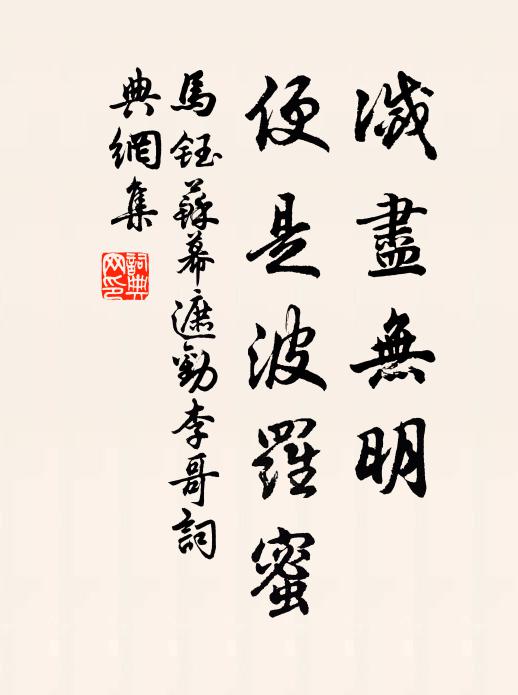 滅盡無明
便是波羅蜜
馬鈺蘇幕遮勸李哥詞
典網集
詞典網印